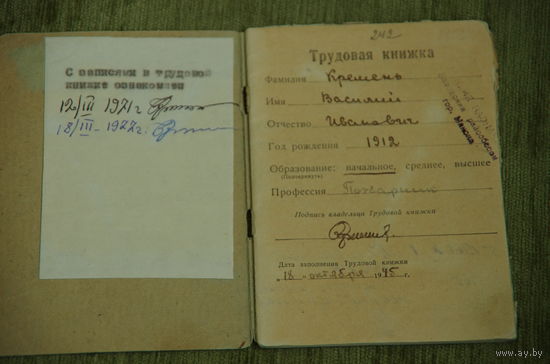 С записями в трудовой
книжке ознакомлен
12/III 1971 г.
18/III - 1977 г.
242
Трудовая книжка
Фамилия Кремень
Имя Василий
Отчество Иванович
Год рождения 1912
Образование: начальное, среднее, высшее
(Подчеркнуть)
Профессия Пожарник
Подпись владельца Трудовой книжки
Дата заполнения Трудовой книжки
"18" октября 1945 г.
гор. Минска
www.ay.by